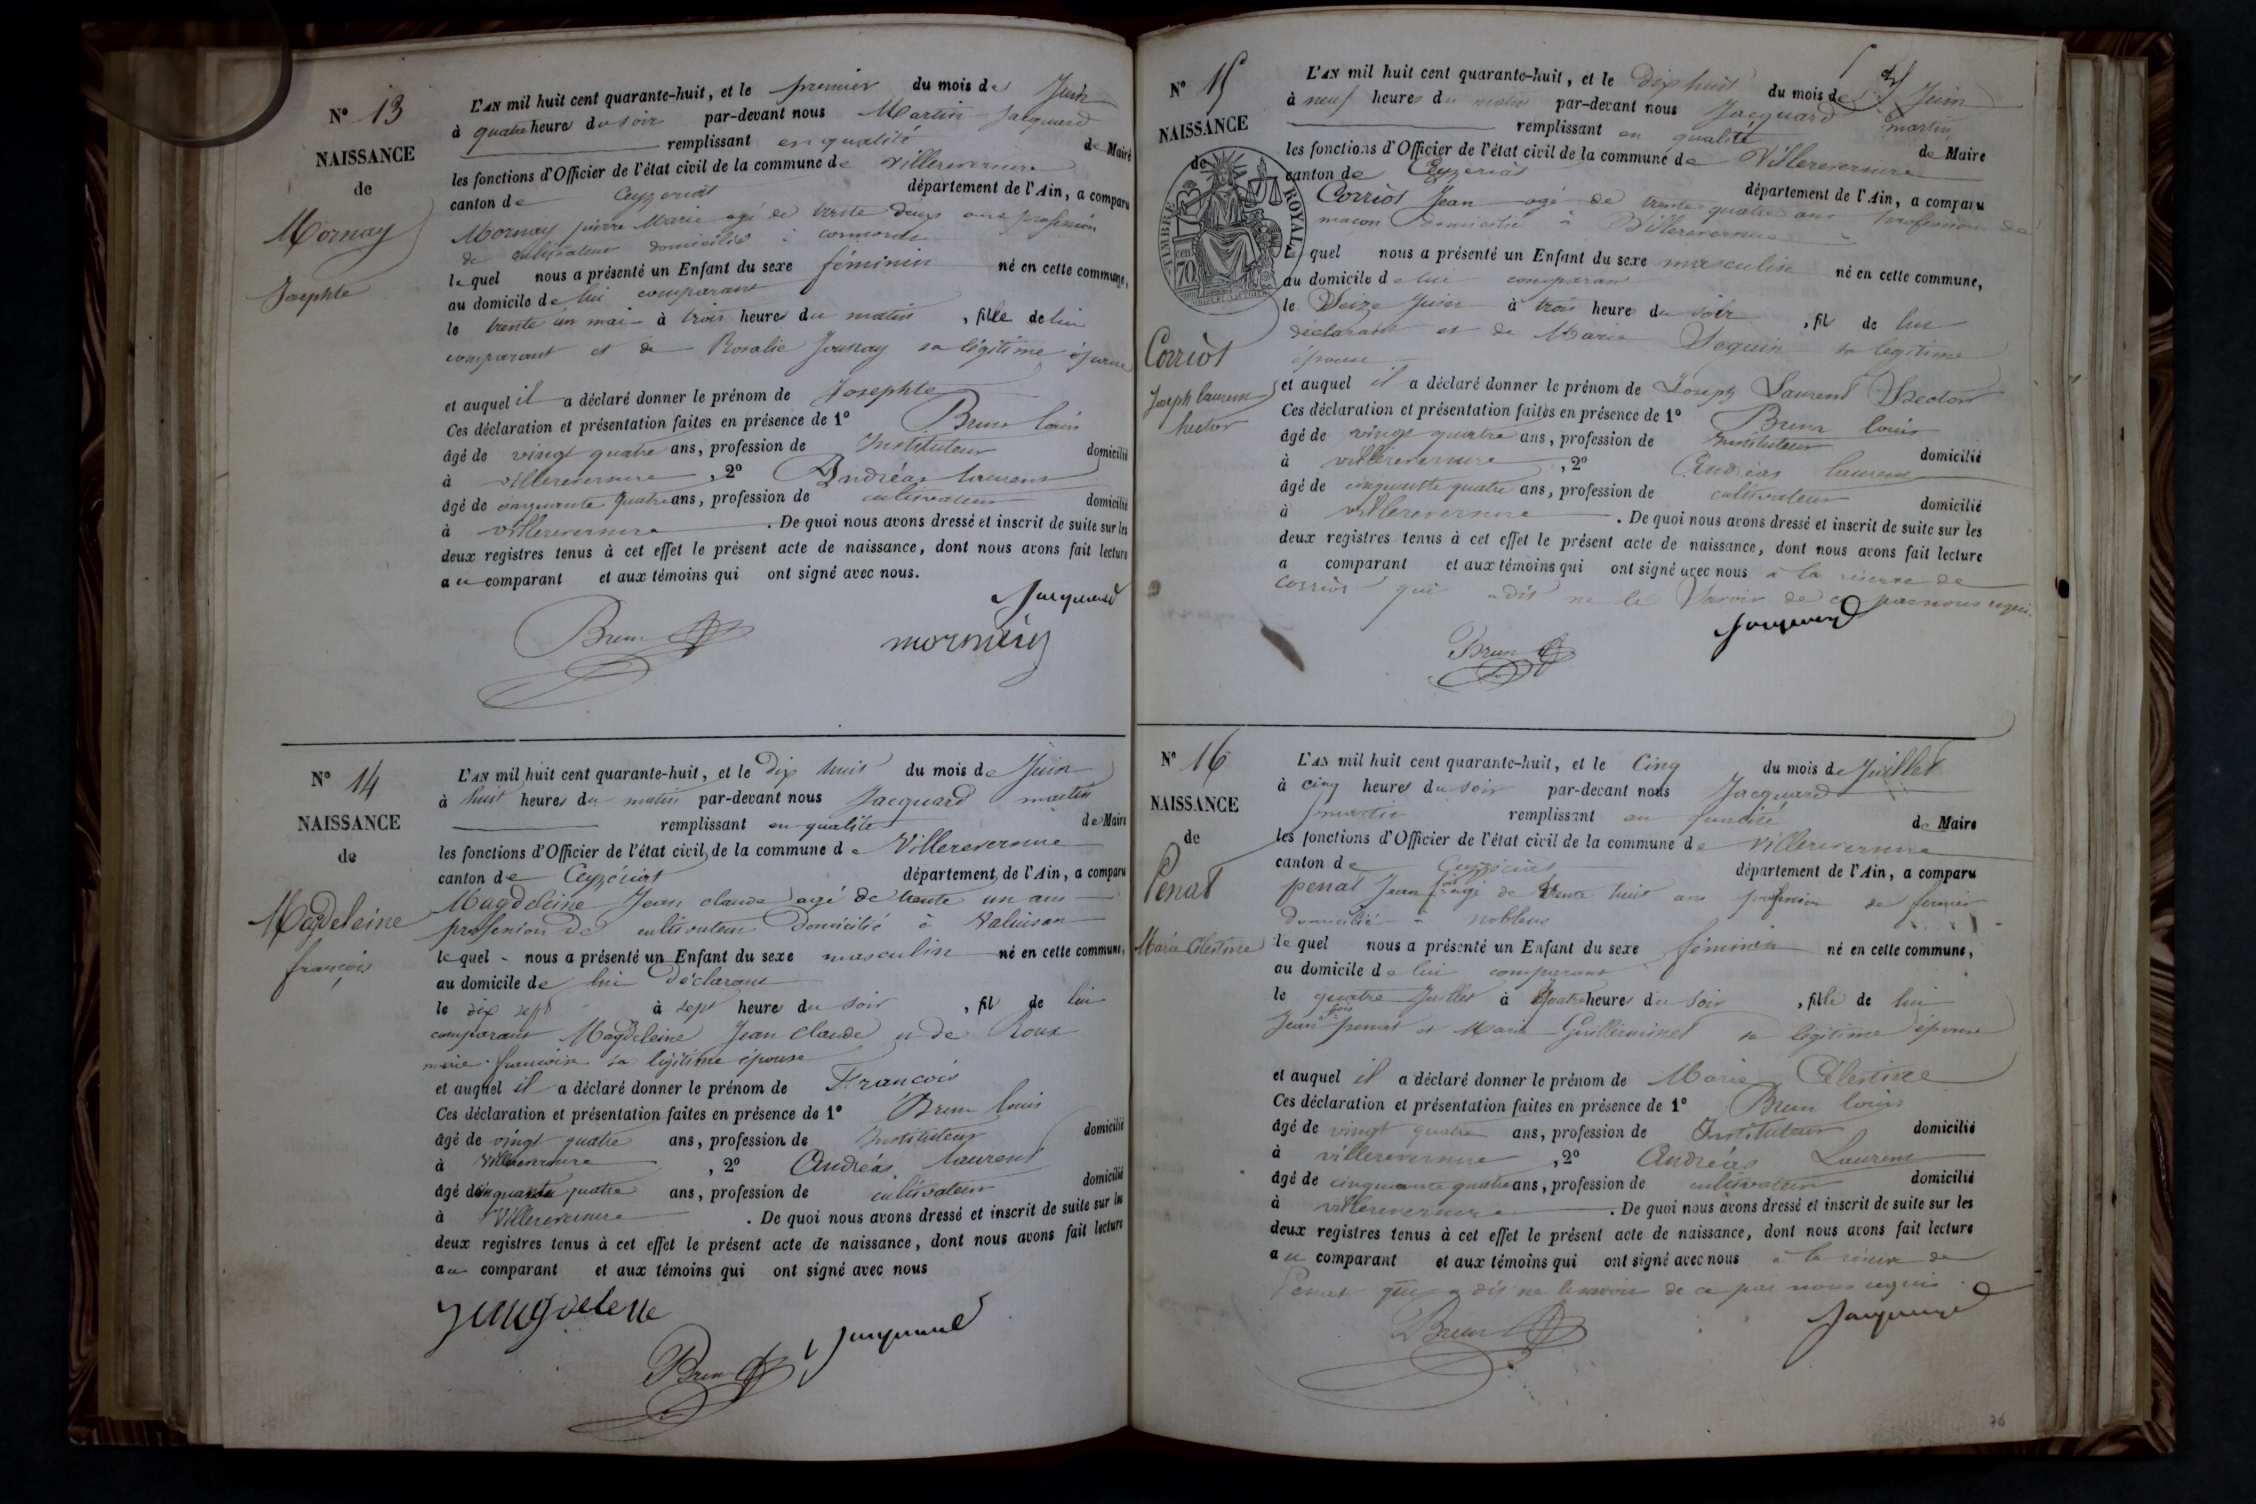 N° 13
NAISSANCE
de
Mornay
Josephte
L'AN mil huit cent quarante-huit, et le premier du mois de Juin
à quatre heures du soir par-devant nous Martin Jacquard
remplissant en qualité de Maire
les fonctions d'Officier de l'état civil de la commune de Villereversure
canton de Ceyzeriat département de l'Ain, a comparu
Mornay pierre Marie agé de trente deux ans profession
de cultivateur domicilié à
lequel nous a présenté un Enfant du sexe féminin né en cette commune,
au domicile de lui comparant
le trente un mai à trois heures du matin, fille de lui
comparant et de Rosalie sa légitime épouse
et auquel il a déclaré donner le prénom de Josephte
Ces déclaration et présentation faites en présence de 1° Brun louis
âgé de vingt quatre ans, profession de Instituteur domicilié
à villereversure, 2° Andréas laurent
âgé de cinquante quatre ans, profession de cultivateur domicilié
à villereversure. De quoi nous avons dressé et inscrit de suite sur les
deux registres tenus à cet effet le présent acte de naissance, dont nous avons fait lecture
au comparant et aux témoins qui ont signé avec nous.
Jacquard
Brun
mornay
N° 14
NAISSANCE
de
Magdeleine
françois
L'AN mil huit cent quarante-huit, et le dix huit du mois de Juin
à huit heures du matin par-devant nous Jacquard martin
remplissant en qualité de Maire
les fonctions d'Officier de l'état civil de la commune de Villereversure
canton de Ceyzériat département de l'Ain, a comparu
Magdeleine Jean claude agé de trente un ans
profession de cultivateur domicilié à
lequel nous a présenté un Enfant du sexe masculin né en cette commune,
au domicile de lui déclarant
le dix sept à sept heure du soir, fil de lui
comparant Magdeleine Jean Claude et de Roux
marie françoise sa légitime épouse
et auquel il a déclaré donner le prénom de François
Ces déclaration et présentation faites en présence de 1° Brun louis
âgé de vingt quatre ans, profession de Instituteur domicilié
à Villereversure, 2° Andréas laurent
âgé de cinquante quatre ans, profession de cultivateur domicilié
à Villereversure. De quoi nous avons dressé et inscrit de suite sur les
deux registres tenus à cet effet le présent acte de naissance, dont nous avons fait lecture
au comparant et aux témoins qui ont signé avec nous
Brun
Jacquard
N° 15
NAISSANCE
de
TIMBRE ROYAL
70
Corriot
Joseph laurent
hector
L'AN mil huit cent quarante-huit, et le Dix huit du mois de Juin
à neuf heures du matin par-devant nous Jacquard martin
remplissant en qualité de Maire
les fonctions d'Officier de l'état civil de la commune de Villereversure
canton de Ceyzeriat département de l'Ain, a comparu
Corriot Jean agé de trente quatre ans profession de
macon domicilié à Villereversure
le quel nous a présenté un Enfant du sexe masculin né en cette commune,
au domicile de lui comparant
le Seize Juin à trois heures du soir, fil de lui
déclarant et de Marie Seguin sa legitime
épouse
et auquel il a déclaré donner le prénom de Joseph Laurent Hector
Ces déclaration et présentation faites en présence de 1° Brun louis
âgé de vingt quatre ans, profession de Instituteur domicilié
à villereversure, 2° Andréas laurent
âgé de cinquante quatre ans, profession de cultivateur domicilié
à villereversure. De quoi nous avons dressé et inscrit de suite sur les
deux registres tenus à cet effet le présent acte de naissance, dont nous avons fait lecture
a comparant et aux témoins qui ont signé avec nous à la réserve de
Corriot qui a dit ne le savoir de ce par nous requis.
Jacquard
Brun
N° 16
NAISSANCE
de
Penat
Marie Célestine
L'AN mil huit cent quarante-huit, et le Cinq du mois de Juillet
à cinq heures du soir par-devant nous Jacquard
martin remplissant en qualité de Maire
les fonctions d'Officier de l'état civil de la commune de Villereversure
canton de Ceyzériat département de l'Ain, a comparu
penat Jean agé de trente huit ans profession de fermier
domicilié à noblens
le quel nous a présenté un Enfant du sexe féminin né en cette commune,
au domicile de lui comparant
le quatre Juillet à quatre heures du soir, fille de lui
Jean penat et Marie Guillerminet sa légitime épouse
et auquel il a déclaré donner le prénom de Marie Célestine
Ces déclaration et présentation faites en présence de 1° Brun louis
âgé de vingt quatre ans, profession de Instituteur domicilié
à villereversure, 2° Andréas Laurent
âgé de cinquante quatre ans, profession de cultivateur domicilié
à villereversure. De quoi nous avons dressé et inscrit de suite sur les
deux registres tenus à cet effet le présent acte de naissance, dont nous avons fait lecture
au comparant et aux témoins qui ont signé avec nous à la réserve de
Penat qui a dit ne le savoir de ce par nous requis.
Brun
Jacquard
76